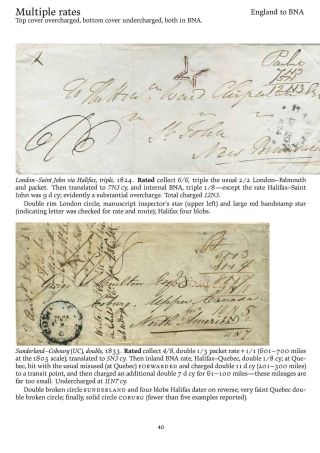 Multiple rates
England to BNA
Top cover overcharged, bottom cover undercharged, both in BNA.
St John
London–Saint John via Halifax, triple, 1824. Rated collect 6/6, triple the usual 2/2 London–Falmouth
and packet. Then translated to 7N3 cy, and internal BNA, triple 1/8—except the rate Halifax–Saint
John was 9 d cy; evidently a substantial overcharge. Total charged 12N3.
Double rim London circle; manuscript inspector's star (upper left) and large red handstamp star
(indicating letter was checked for rate and route); Halifax four blobs.
Upper Canada
North America
Sunderland–Cobourg (UC), double, 1833. Rated collect 4/8, double 1/3 packet rate + 1/1 (601–700 miles
at the 1805 scale); translated to 5N3 cy. Then inland BNA rate, Halifax–Quebec, double 1/8 cy; at Que-
bec, hit with the usual misused (at Quebec) FORWARDED and charged double 11 d cy (201–300 miles)
to a transit point, and then charged an additional double 7 d cy for 61–100 miles—these mileages are
far too small. Undercharged at 11N7 cy.
Double broken circle SUNDERLAND and four blobs Halifax dater on reverse; very faint Quebec dou-
ble broken circle; finally, solid circle COBURG (fewer than five examples reported).
40